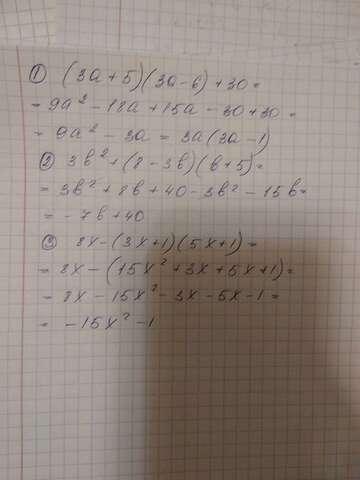 ① (3a+5)(3a-6)+30=
= 9a² - 18a + 15a - 30 + 30 =
= 9a² - 3a = 3a(3a-1)
② 3b² + (8-3b)(b+5) =
= 3b² + 8b + 40 - 3b² - 15b =
= -7b + 40
③ 8x - (3x+1)(5x+1) =
= 8x - (15x² + 3x + 5x + 1) =
= 8x - 15x² - 3x - 5x - 1 =
= -15x² - 1